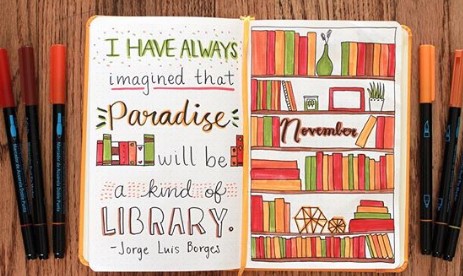 I HAVE ALWAYS
imagined that
Paradise
will be
a kind of
LIBRARY.
-Jorge Luis Borges
November